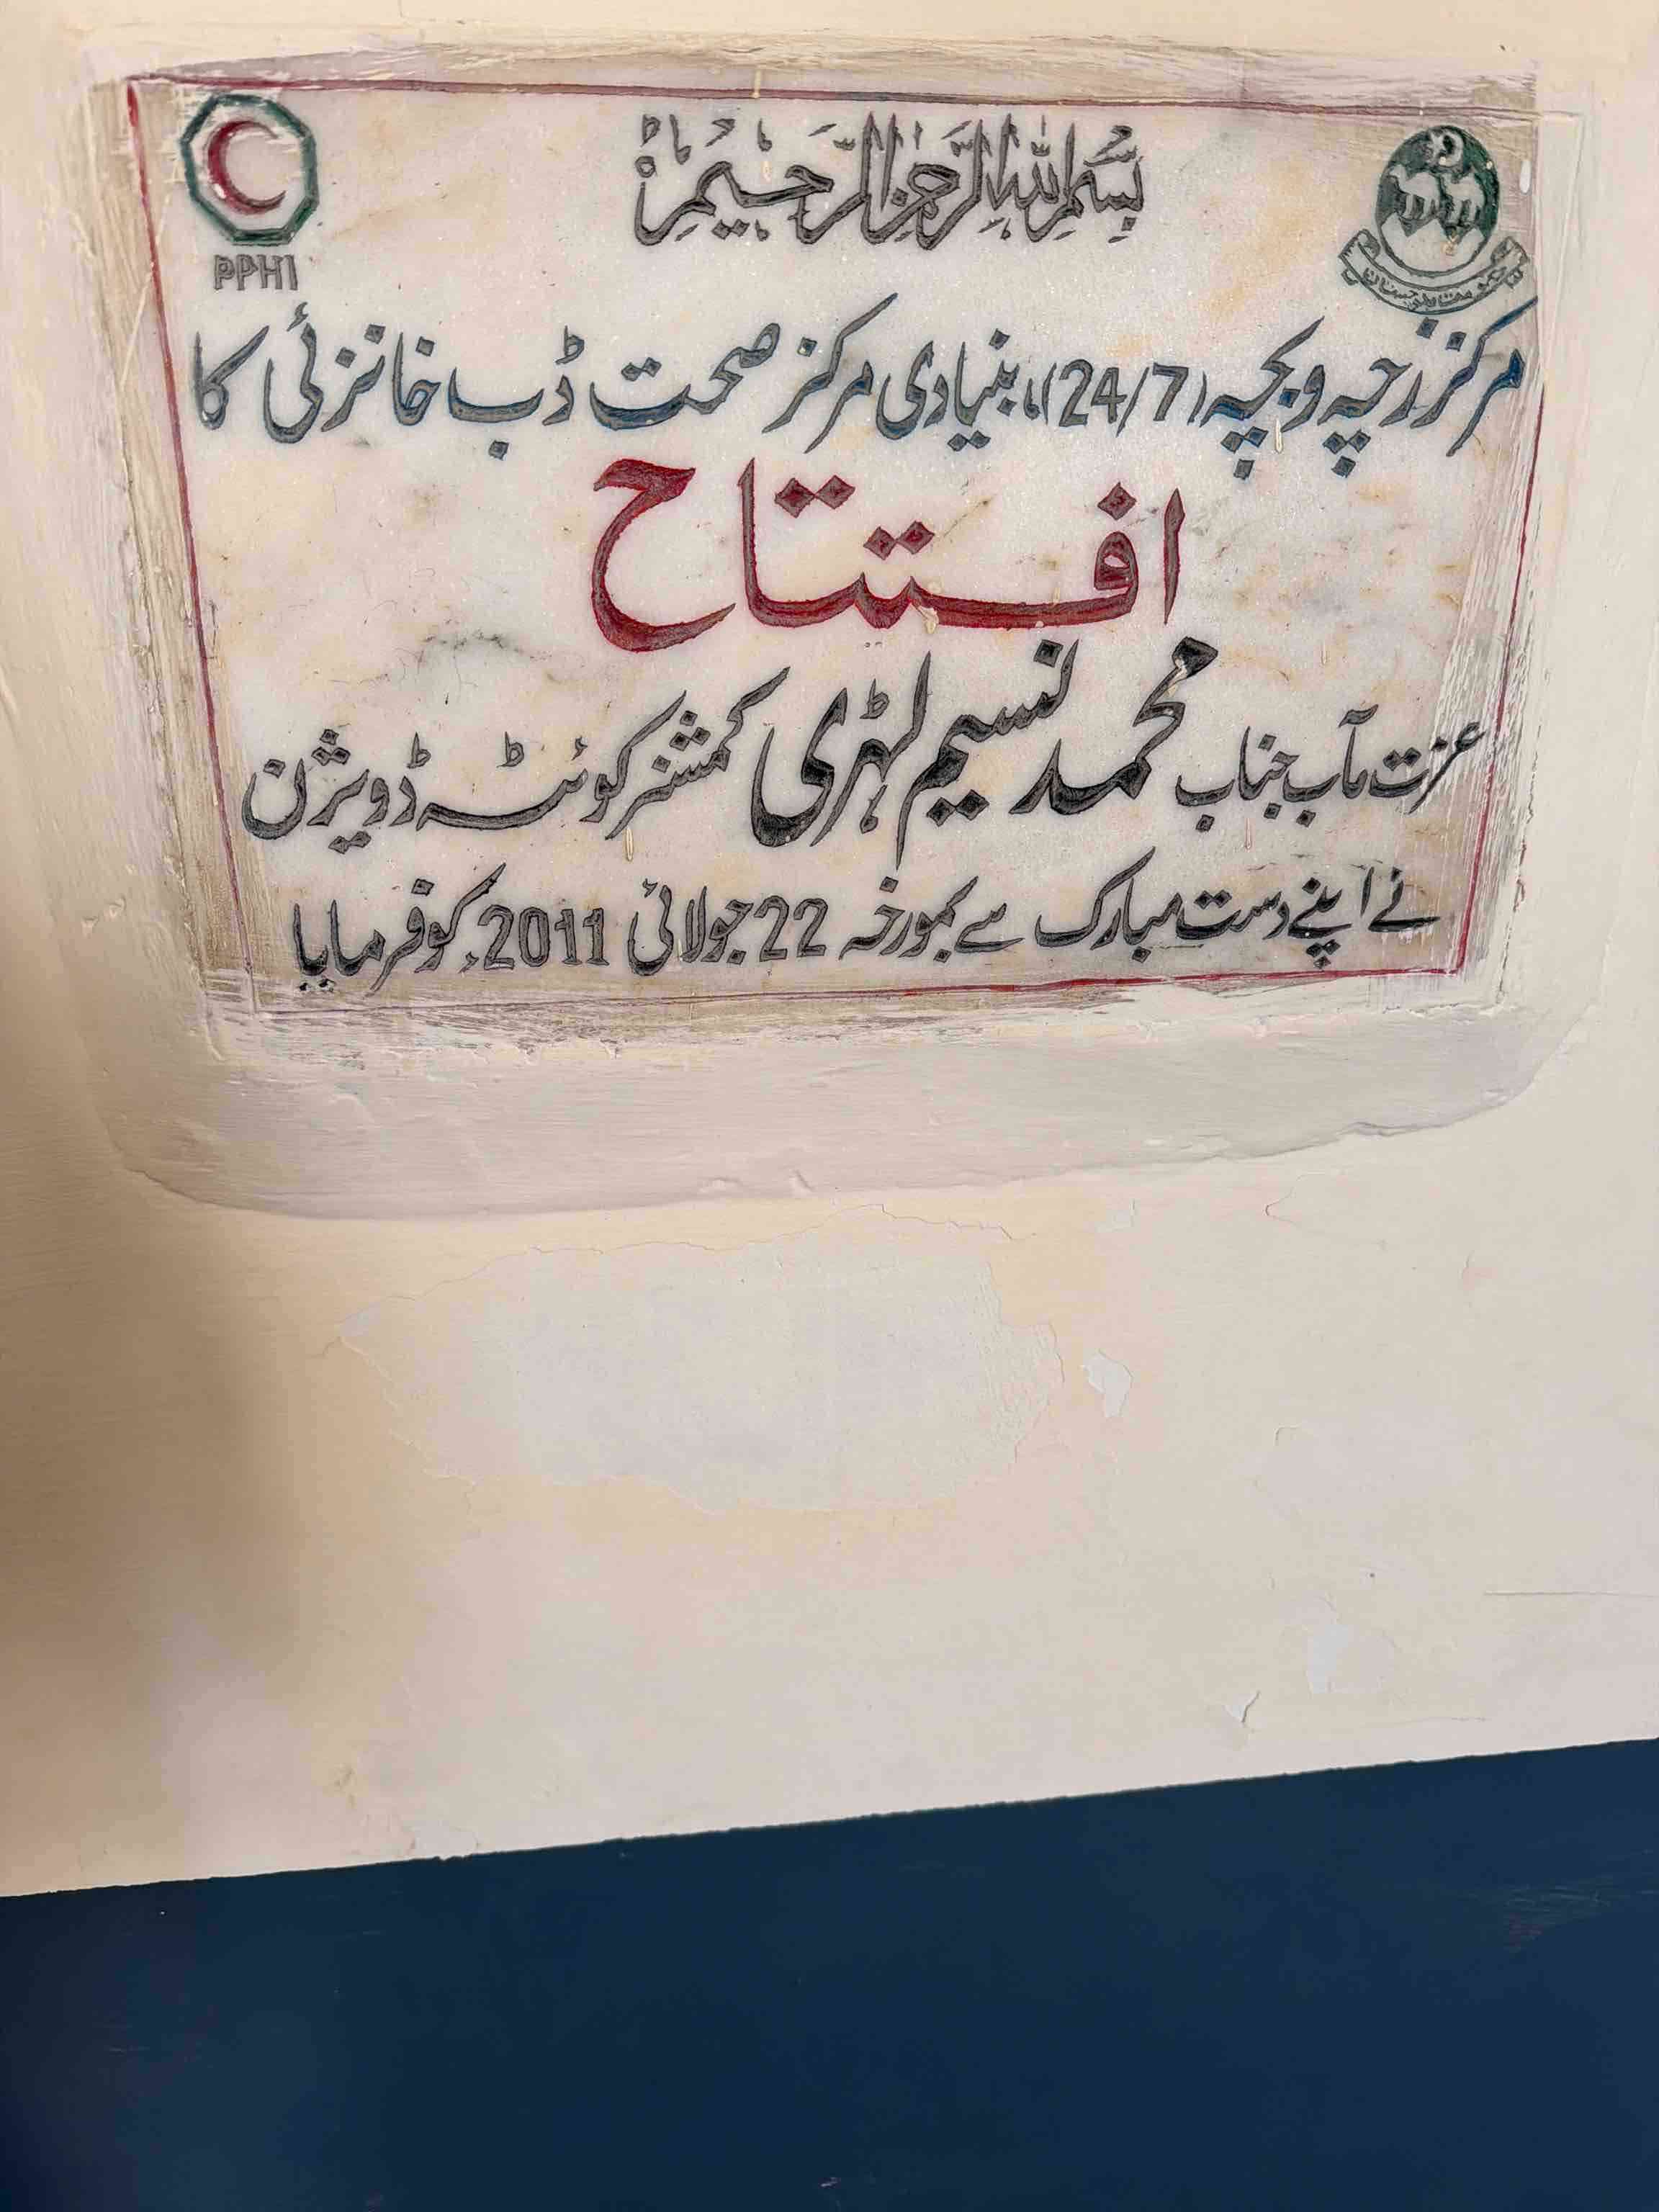 بسم اللہ الرحمن الرحیم
PPHI
حکومت بلوچستان
مرکز زچہ و بچہ (24/7)، بنیادی مرکز صحت ڈب خانزئی کا
افتتاح
عزت مآب جناب محمد نسیم لہڑی کمشنر کوئٹہ ڈویژن
نے اپنے دست مبارک سے بمورخہ 22 جولائی 2011ء کو فرمایا